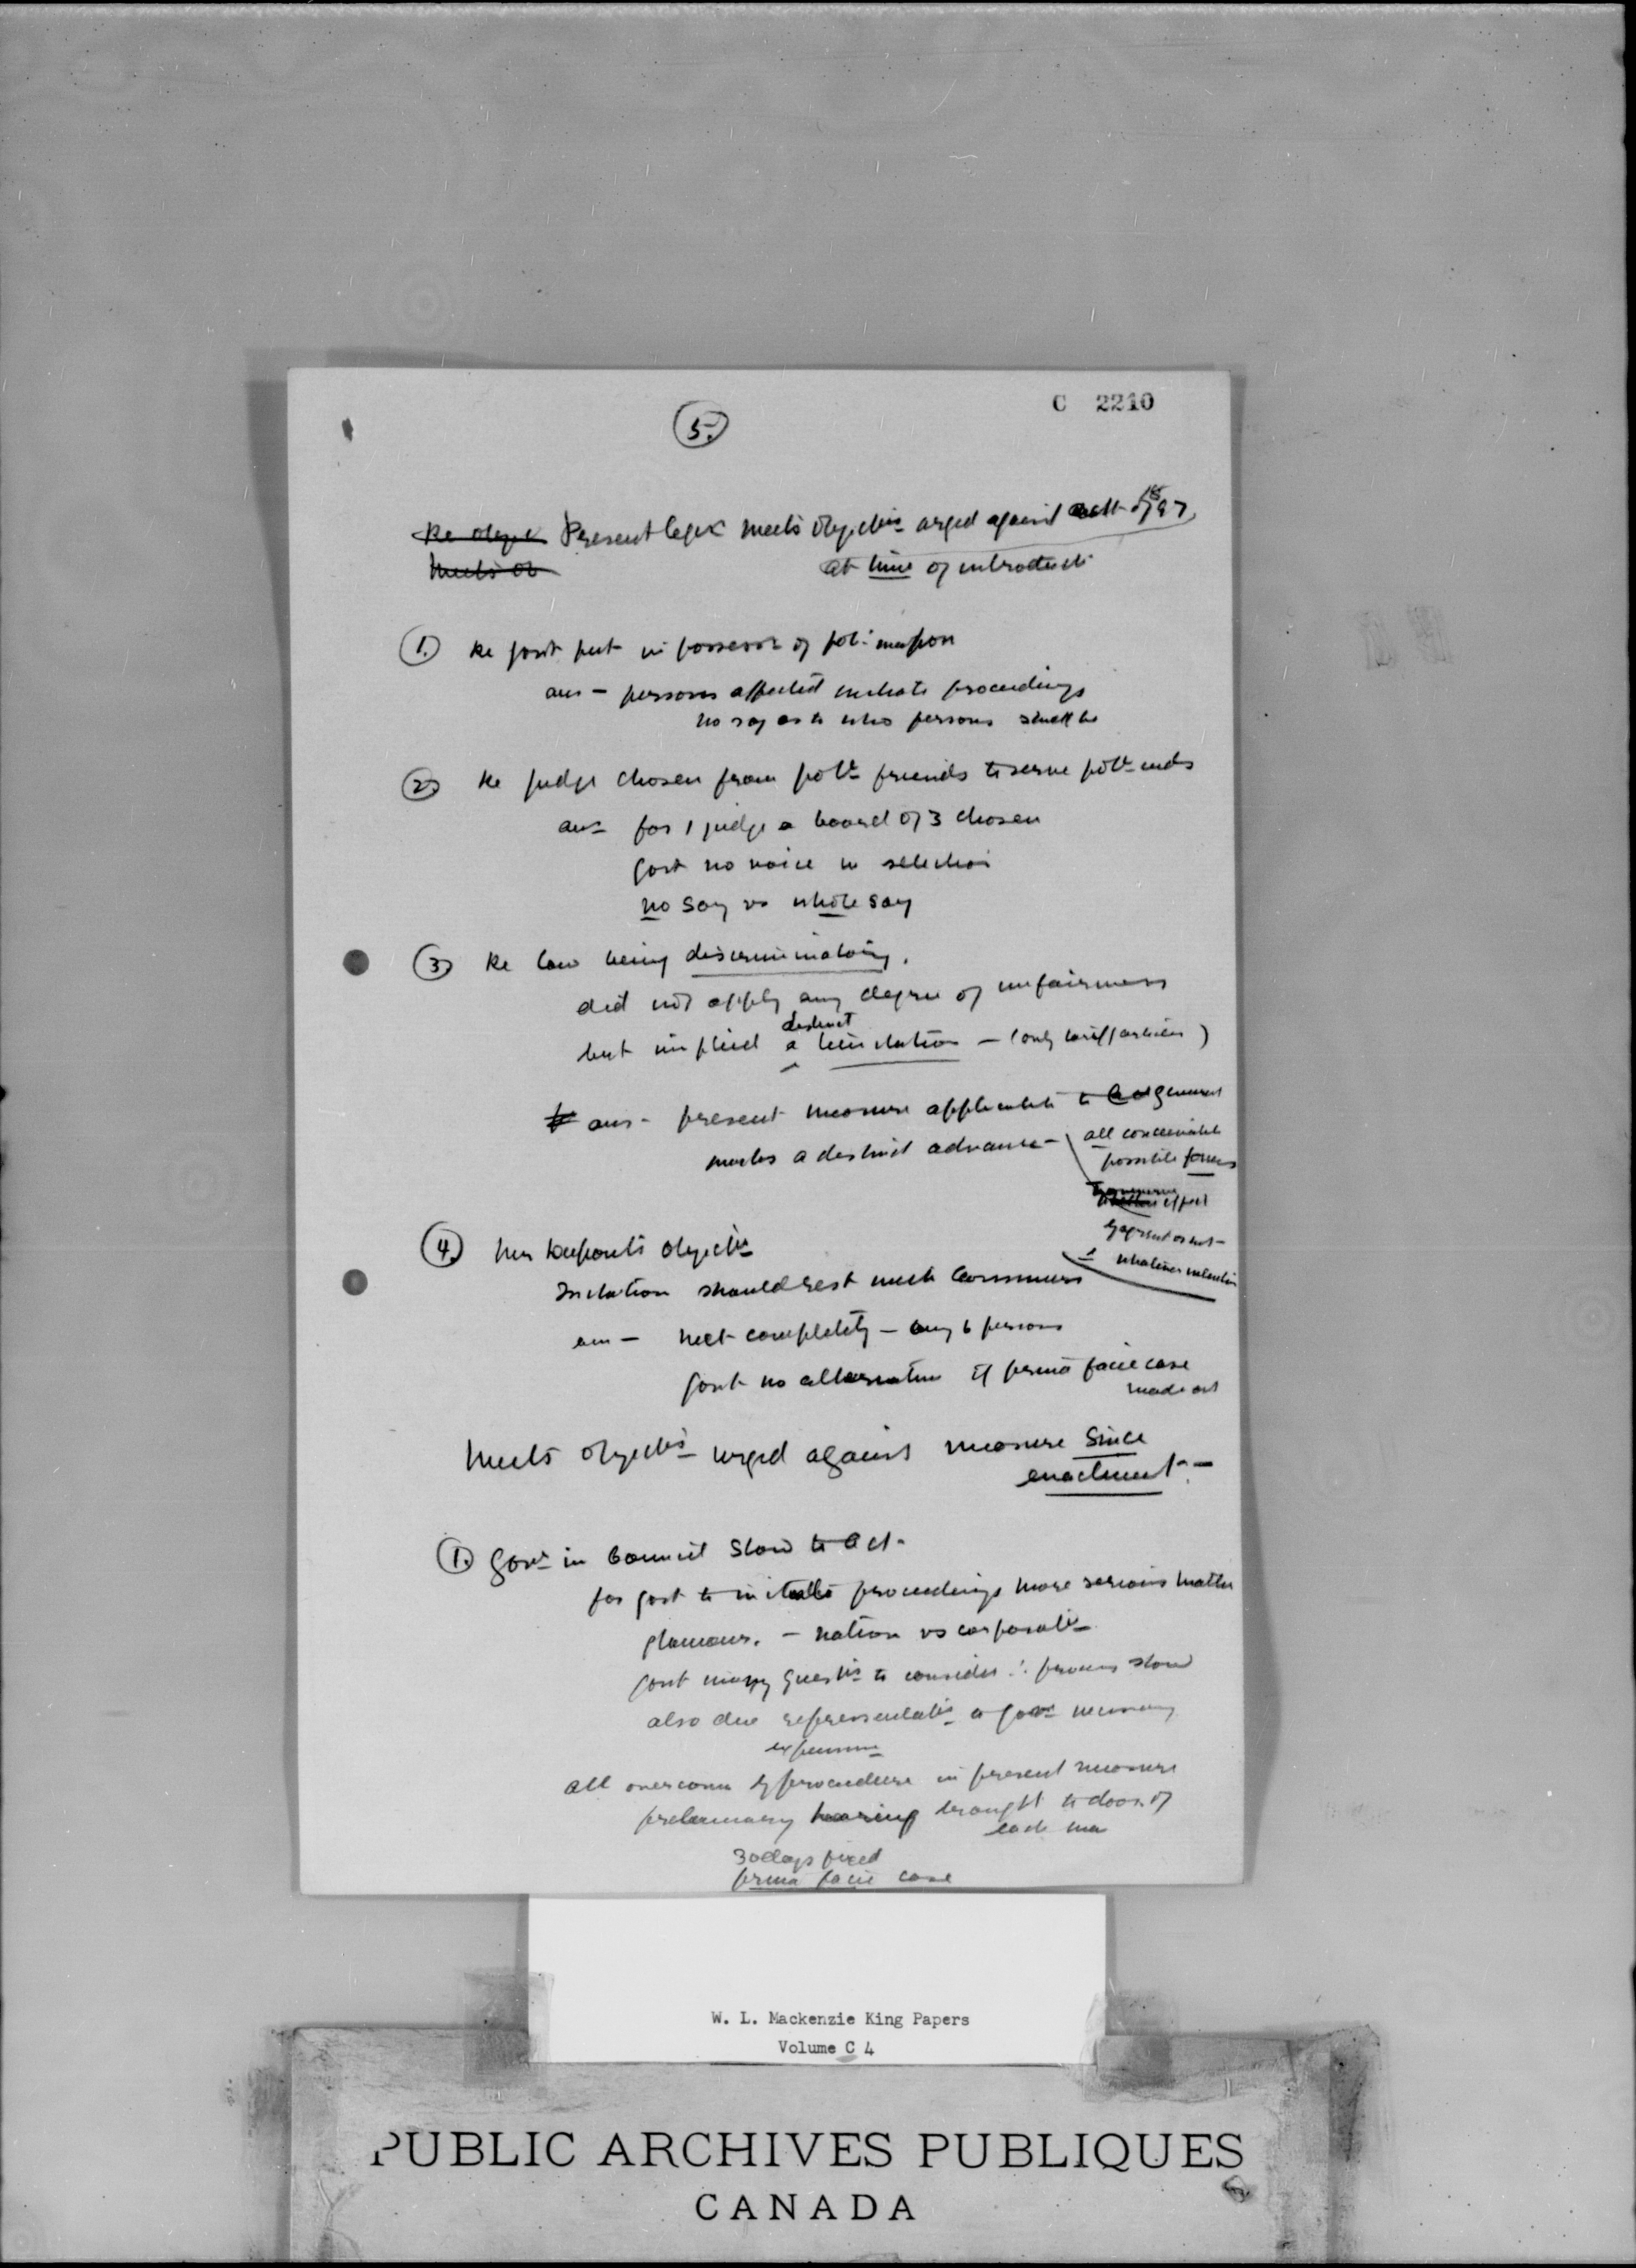 C 2210
5.
Re objec Present legisn meets objectns urged against act of 1897
Meets ob at time of introductn
1. Re govt put in possessn of pol. weapon
ans - persons affected initiate proceedings
no say as to who persons shall be
2. Re judge chosen from poll friends to serve poll ends
ans for 1 judge a board of 3 chosen
govt no voice in selection
no say vs whole say
3. Re law being discriminatory.
did not apply any degree of unfairness
but implied a distinct limitation - (only tariff articles)
ans - present measure applicable to
marks a distinct advance -
all conceivable
possible forms
effect
agreement or not -
& whatever intention
4. objectn
Initiation should rest with Consumers
ans - met completely - any 6 persons
govt no alternative if prima facie case
made out
Meets objectns urged against measure since
enactment: -
1. Govr in Council slow to act.
for govt to initiate proceedings more serious matter
- nation vs corporatn
govt many questns to consider ∴ process slow
also due representatn to govt necessary
expensive
all overcome by procedure in present measure
preliminary hearing brought to door of
each man
30 days fixed
prima facie case
W. L. Mackenzie King Papers
Volume C 4
PUBLIC ARCHIVES PUBLIQUES
CANADA